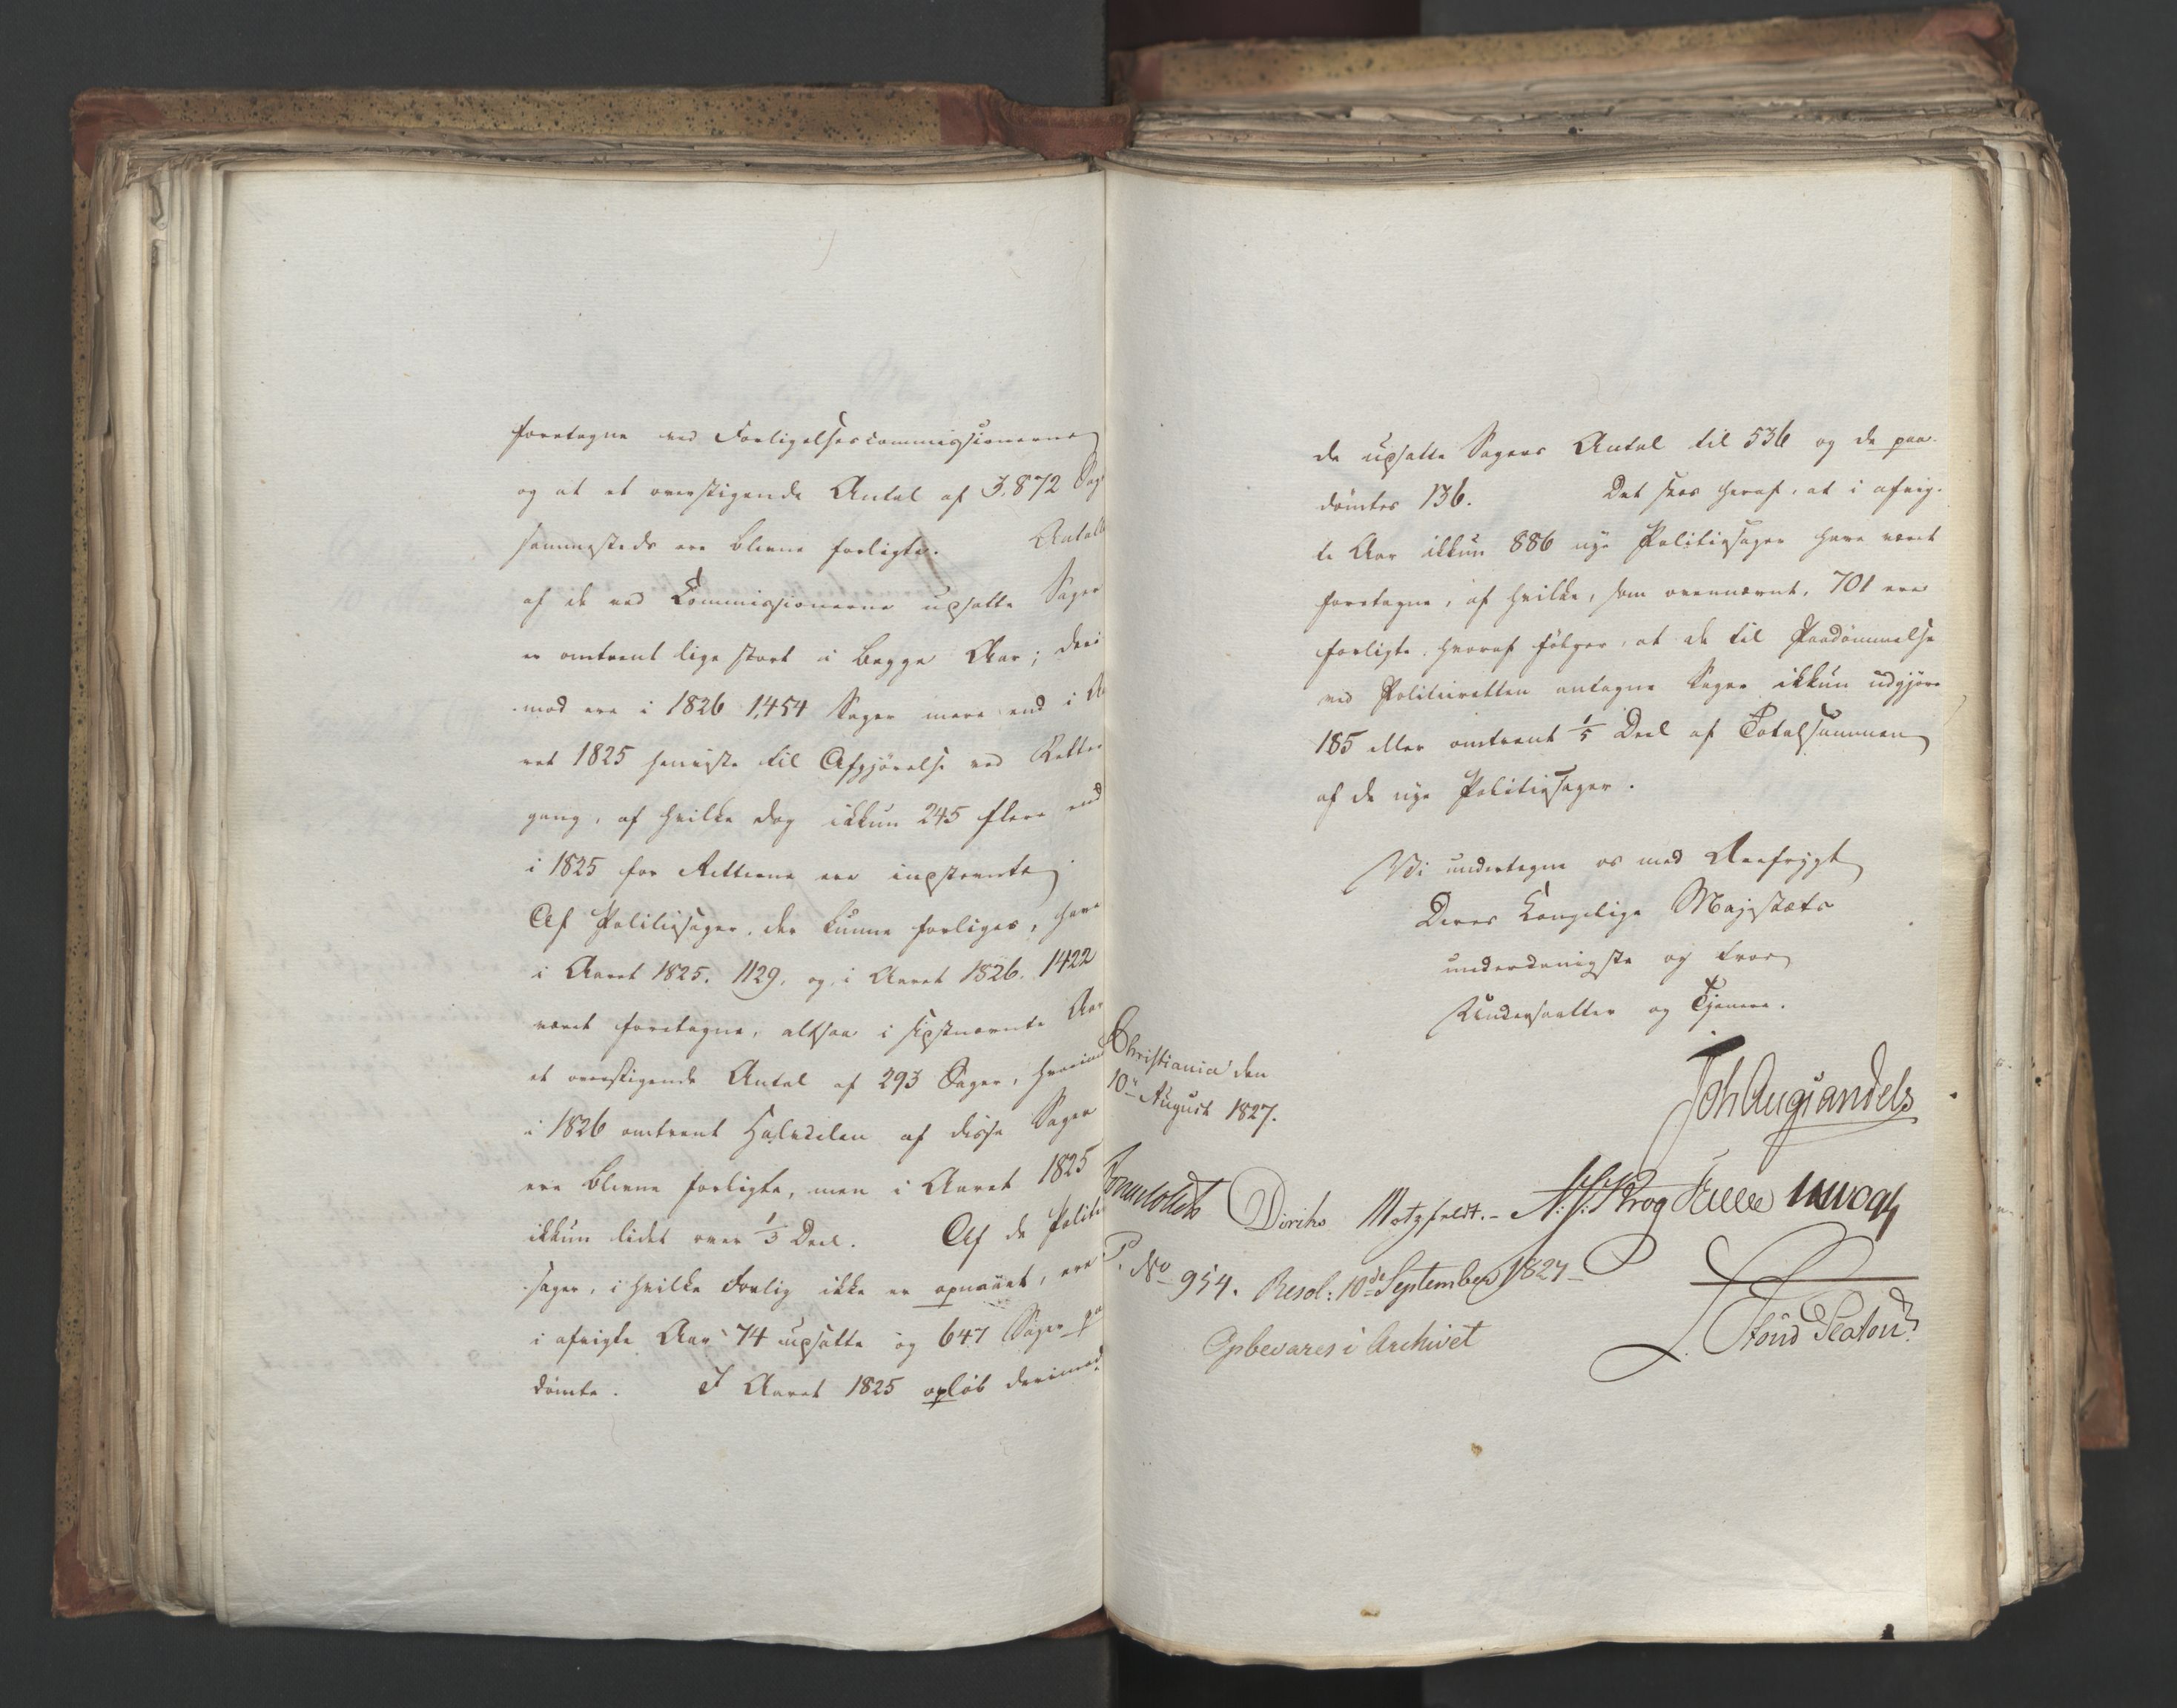 foretagne ved Forligelsescommissionerne
og at et overstigende Antal af 3,872 Sag
sammesteds ere blevne forligte. Antall
af de ved Commissionerne udsatte Sager
er omtrent lige stort i begge Aar; deri
mod ere i 1826 1,454 Sager mere end i A
ret 1825 henviste til Afgjørelse ved Retter
gang, af hvilke dog ikkun 245 flere end
i 1825 for Retterne ere indstevnte
Af Politiesager, der kunne forliges, have
i Aaret 1825. 1129, og i Aaret 1826. 1422
været foretagne, altsaa i sidstnævnte Aar
et overstigende Antal af 293 Sager, hvorimod
i 1826 omtrent Halvdelen af disse Sager
ere blevne forligte, men i Aaret 1825
ikkun lidet over 1/3 Deel. Af de Politie
sager, i hvilke Forlig ikke er opnaaet, ere
i afvigte Aar 74 udsatte og 647 Sager paa
dømte. I Aaret 1825 opløb derimod
de udsatte Sagers Antal til 536 og de paa-
dømtes 136. Det sees heraf, at i afvig-
te Aar ikkun 886 nye Politiesager have været
foretagne, af hvilke, som ovennævnt, 701 ere
forligte, hvoraf følger, at de til Paadømmelse
ved Politieretten antagne Sager ikkun udgjøre
185 eller omtrent 1/5 Deel af Totalsummen
af de nye Politiesager.
Vi undertegne os med Ærefrygt
Deres Kongelige Majestæts
underdanigste og troe
Undersaatter og Tjenere.
Christiania den
10de August 1827.
Joh Aug Sandels
Jonas Collett Diriks Motzfeldt.- Krog Treschow
P. No 954. Resol: 10de September 1827
Opbevares i Archivet